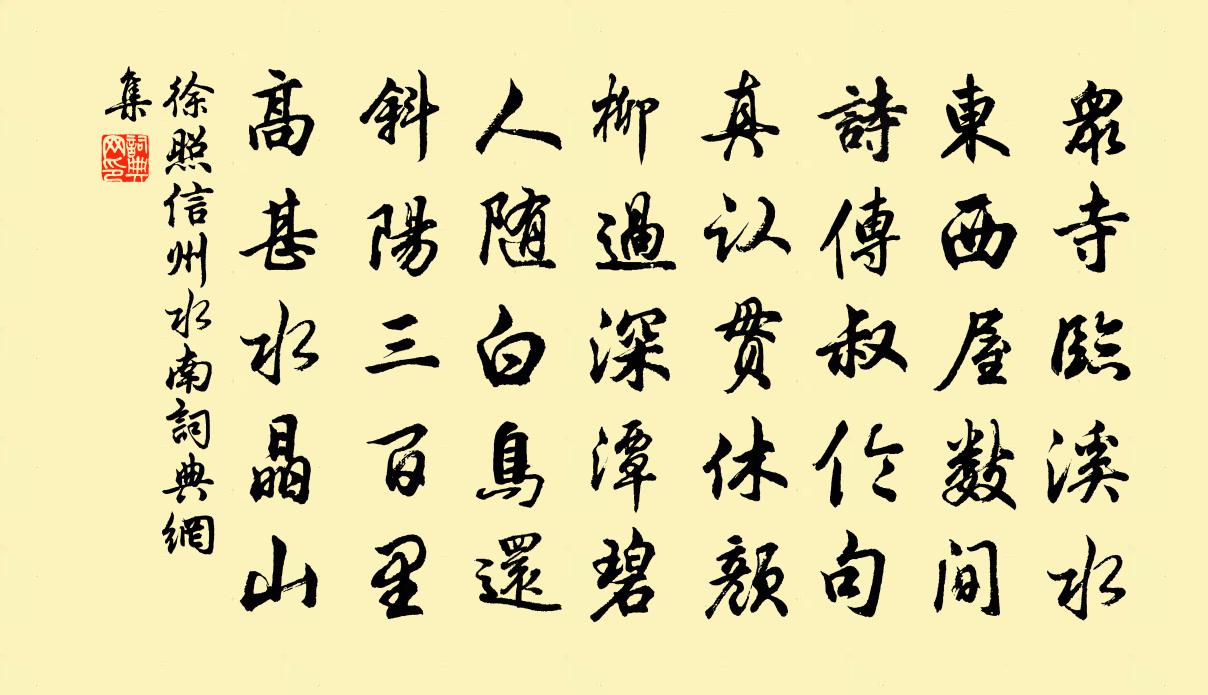 眾寺臨溪水
東西屋數間
詩傳叔倫句
真認貫休顏
柳過深潭碧
人隨白鳥還
斜陽三百里
高甚水晶山
徐照信州水南詞典網
集
詞典網印